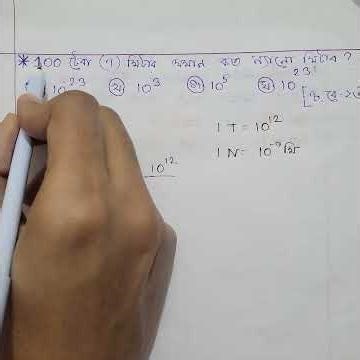 * 100 টেরা (T) মিটার সমান কত ন্যানো মিটার ?
10⁻²³ (খ) 10³ (গ) 10⁵ (ঘ) 10²³
1 T = 10¹²
1 N = 10⁻⁹ মি
10¹²